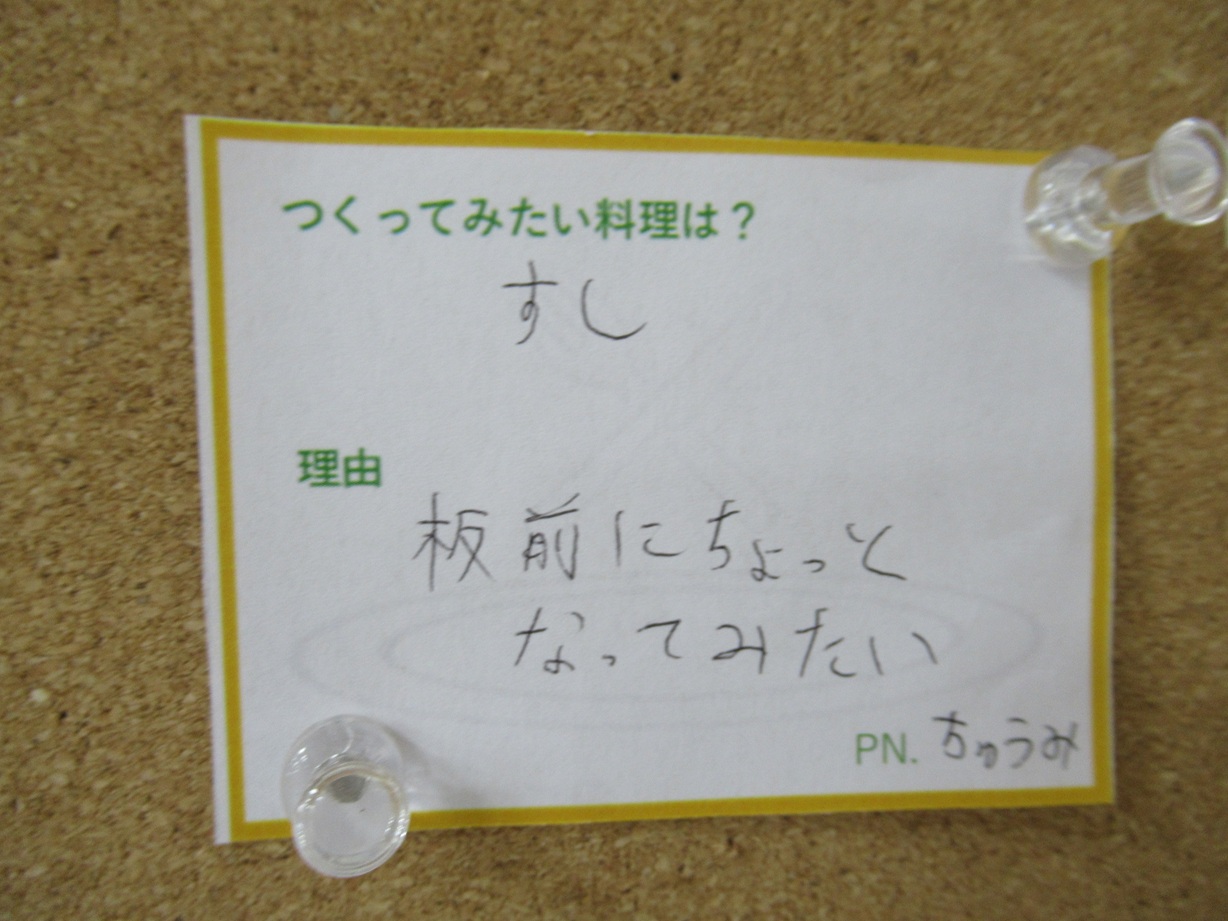 つくってみたい料理は？
すし
理由
板前にちょっと
なってみたい
PN. ちゅうみ